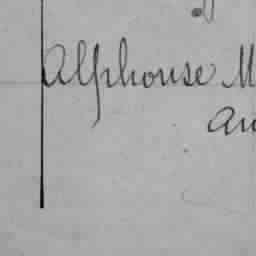 Alphonse M
au